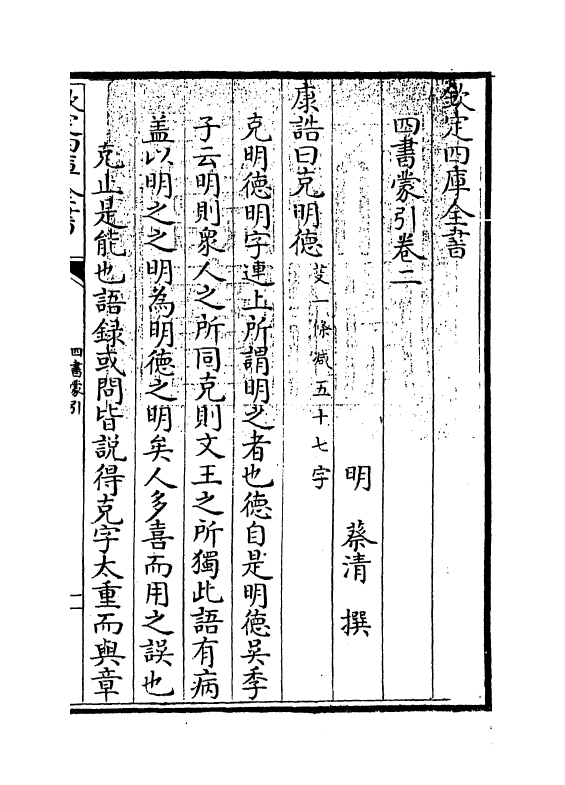 欽定四庫全書
四書蒙引卷二
明 蔡清 撰
康誥曰克明德芟一條減五十七字
克明德明字連上所謂明之者也德自是明德吳季
子云明則衆人之所同克則文王之所獨此語有病
盖以明之之明為明德之明矣人多喜而用之誤也
克止是能也語録或問皆說得克字太重而與章
欽定四庫全書
四書蒙引
一